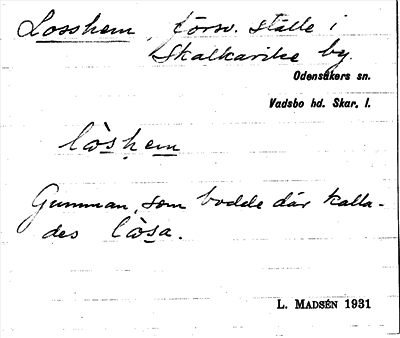 Losshem, försv. ställe i
Skalkarike by.
Odensåkers sn.
Vadsbo hd. Skar. l.
làshem
Gumman, som bodde där kalla-
des làsa.
L. MADSÉN 1931